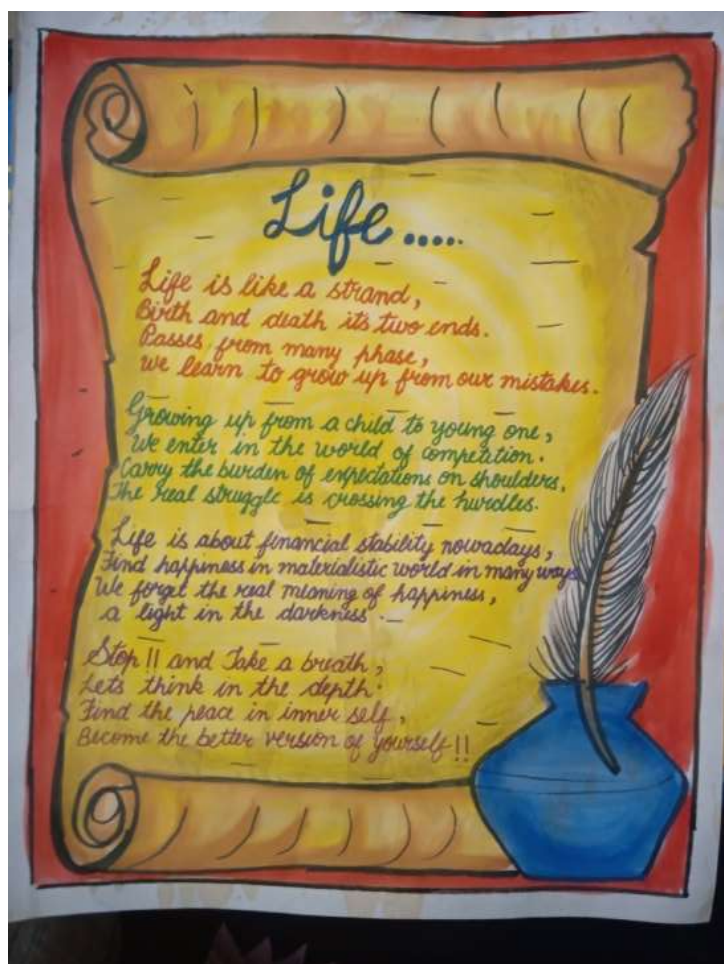 Life.....
Life is like a strand,
Birth and death it's two ends.
Passes from many phase,
We learn to grow up from our mistakes.
Growing up from a child to young one,
We enter in the world of competation.
Carry the burden of expectations on shoulders,
The real struggle is crossing the hurdles.
Life is about financial stability nowadays,
Find happiness in materialistic world in many ways
We forget the real meaning of happiness,
a light in the darkness.
Stop!! and Take a breath,
Lets think in the depth.
Find the peace in inner self,
Become the better version of yourself!!